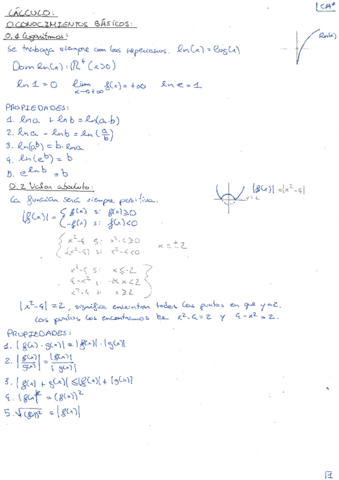 CÁLCULO:
0. CONOCIMIENTOS BÁSICOS:
0.1 Logaritmos:
Se trabaja siempre con los neperianos. ln(x) = log(x)
Dom ln(x): ℝ⁺ (x>0)
ln 1 = 0 lim x→+∞ f(x) = +∞ ln e = 1
PROPIEDADES:
1. ln a + ln b = ln(a·b)
2. ln a - ln b = ln(a/b)
3. ln(a^b) = b·ln a
4. ln(e^b) = b
5. e^(ln b) = b
0.2 Valor absoluto:
La función será siempre positiva.
|f(x)| = { f(x) si f(x)≥0
-f(x) si f(x)<0
|f(x)| = |x²-4|
x²-4 si x²-4≥0
-(x²-4) si x²-4<0
x = ±2
x²-4 si x≤-2
4-x² si -2<x<2
x²-4 si x≥2
|x²-4| = 2, significa encontrar todos los puntos en que y=2.
Los puntos los encontramos de x²-4=2 y 4-x²=2.
PROPIEDADES:
1. |f(x)·g(x)| = |f(x)|·|g(x)|
2. |f(x)/g(x)| = |f(x)|/|g(x)|
3. |f(x)+g(x)| ≤ |f(x)|+|g(x)|
4. |f(x)|² = (f(x))²
5. √(f(x))² = |f(x)|
1